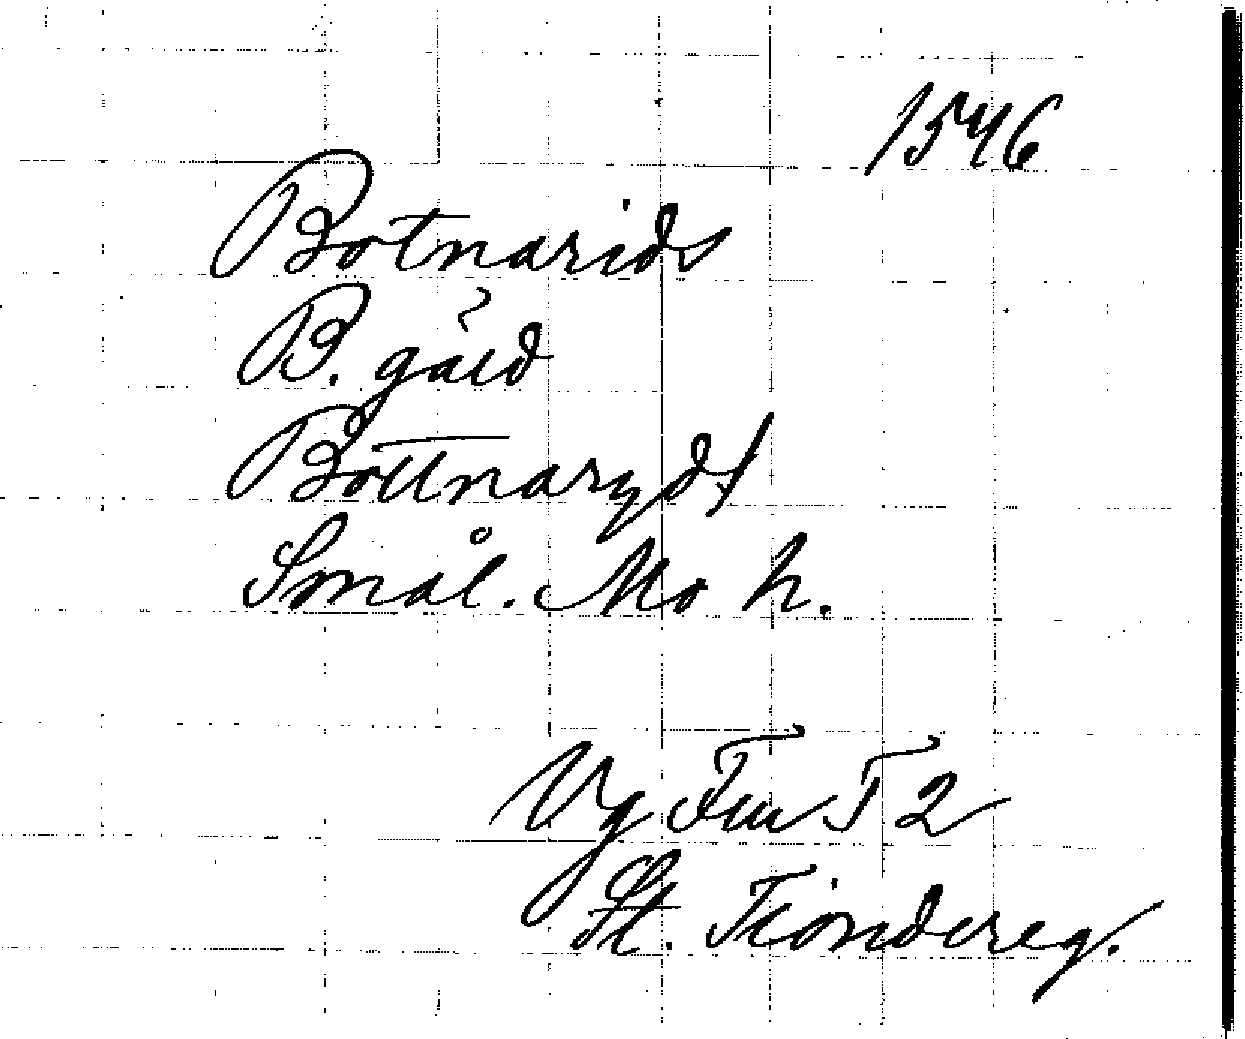 1546
Botnarids
B. gård
Bottnaryds
Smål. Mo h.
Vg 2
St. Tiondereg.